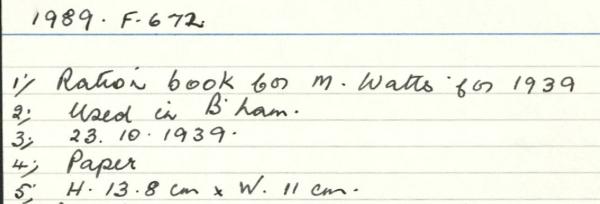 1989. F. 672.
1; Ration book for M. Watts for 1939
2; Used in B'ham.
3; 23. 10. 1939.
4; Paper
5; H. 13.8 cm x W. 11 cm.